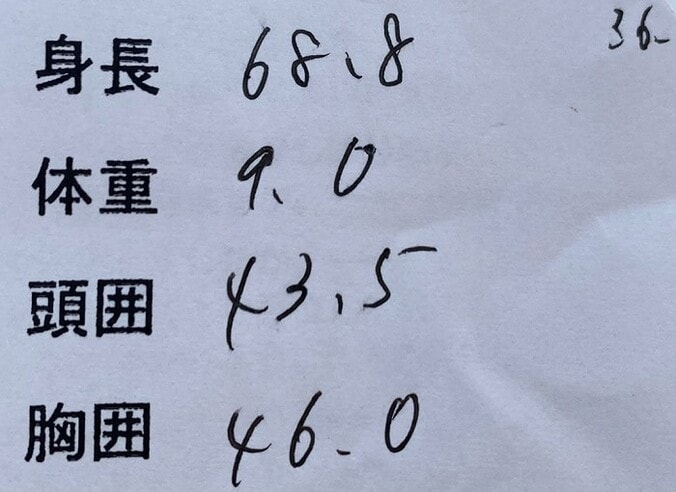 身長 68.8 36.
体重 9.0
頭囲 43.5
胸囲 46.0